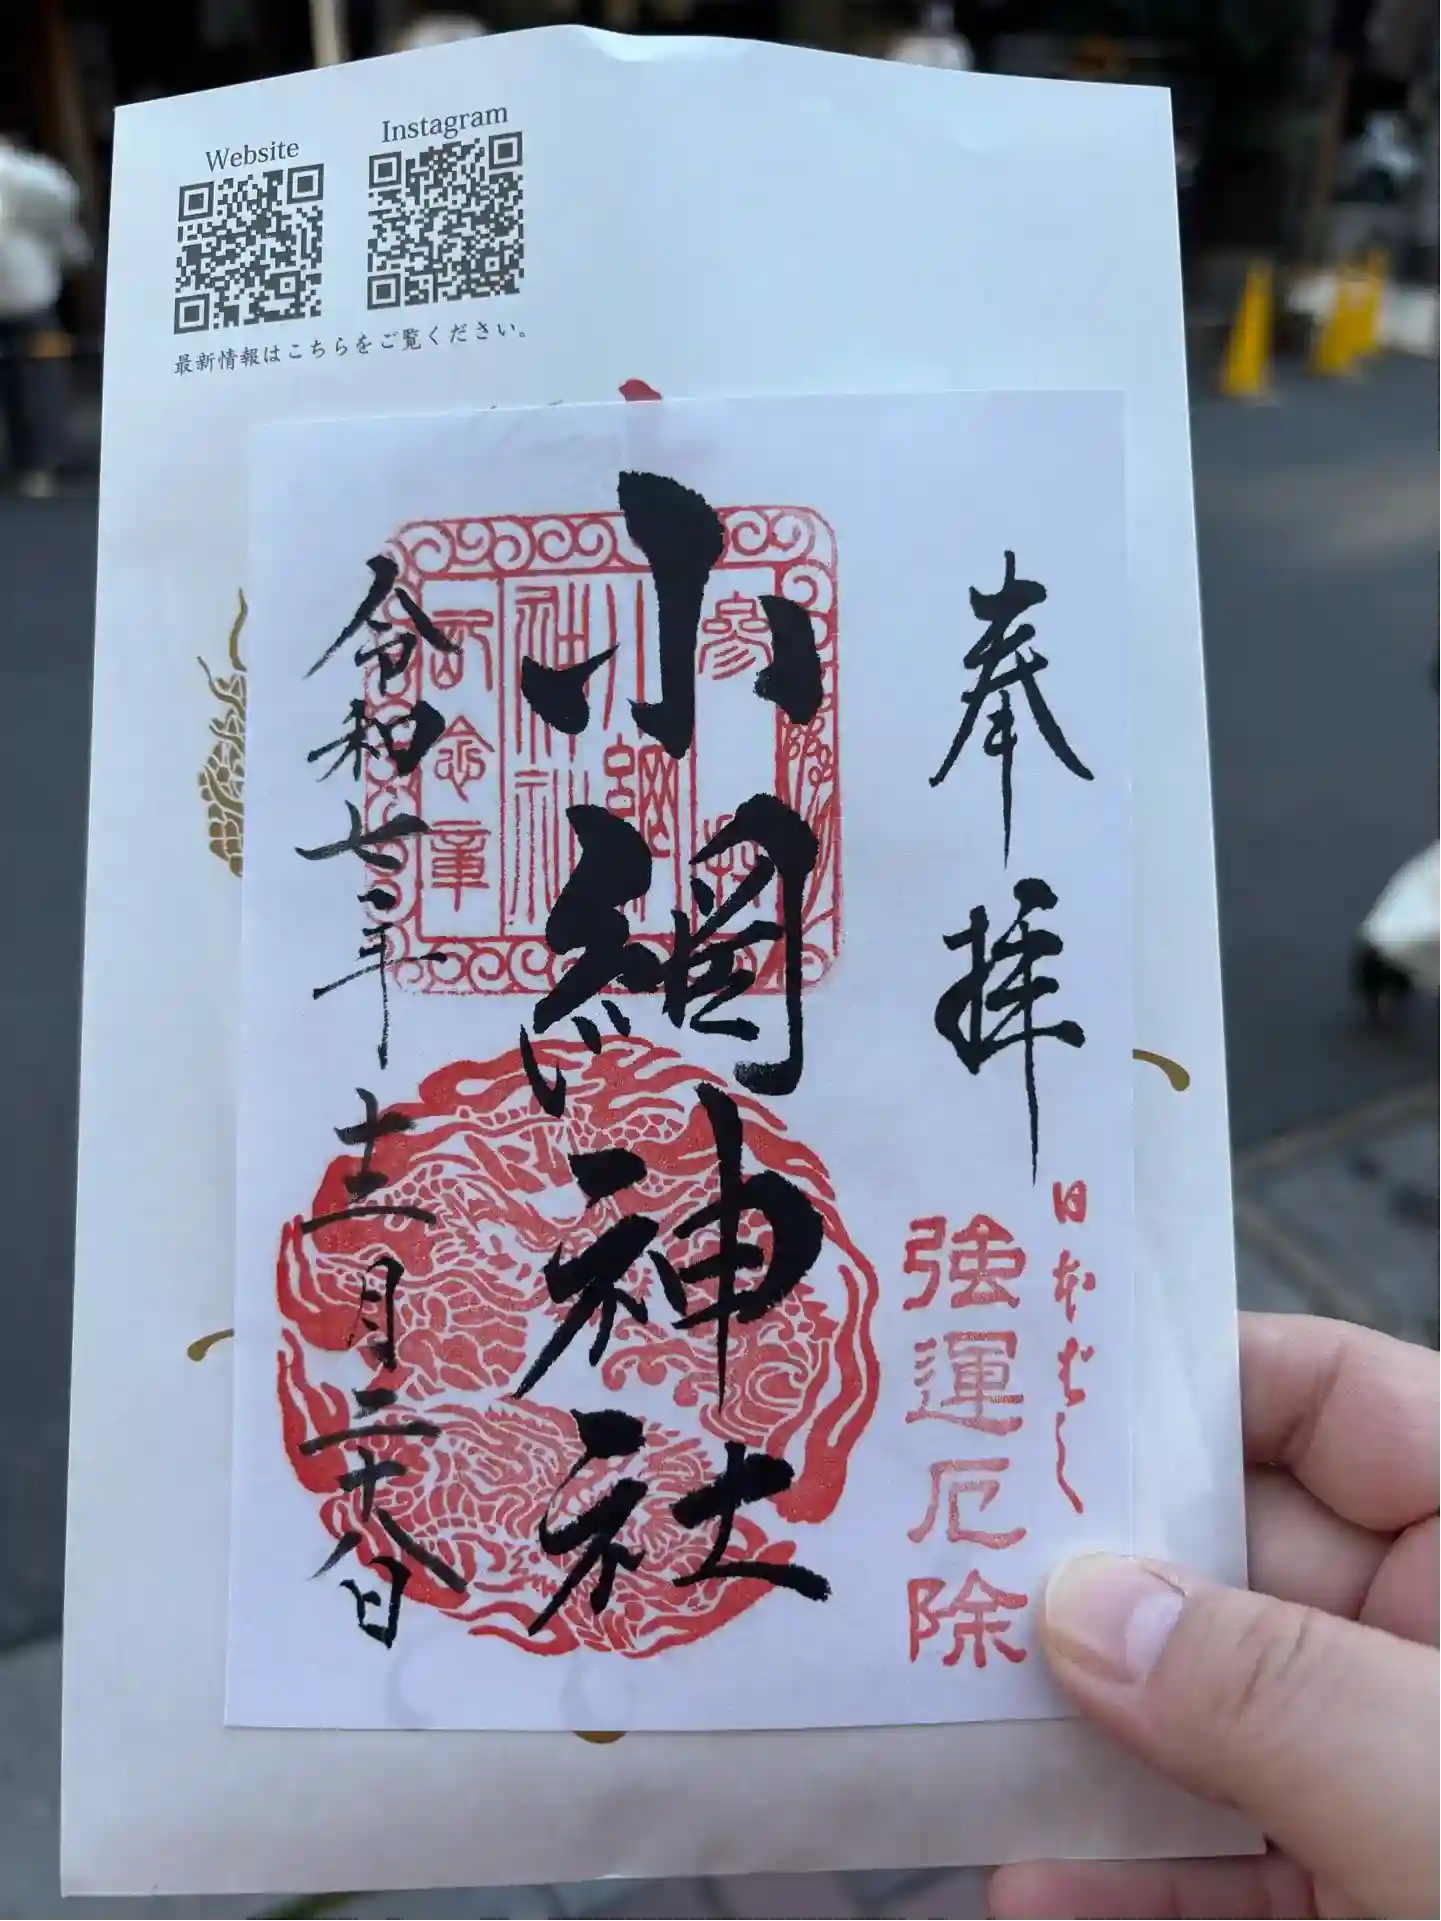 Website
Instagram
最新情報はこちらをご覧ください。
奉拝
日本ばし
強運厄除
小網神社
令和七年十二月二十八日
參拝
小網
神社
記念章